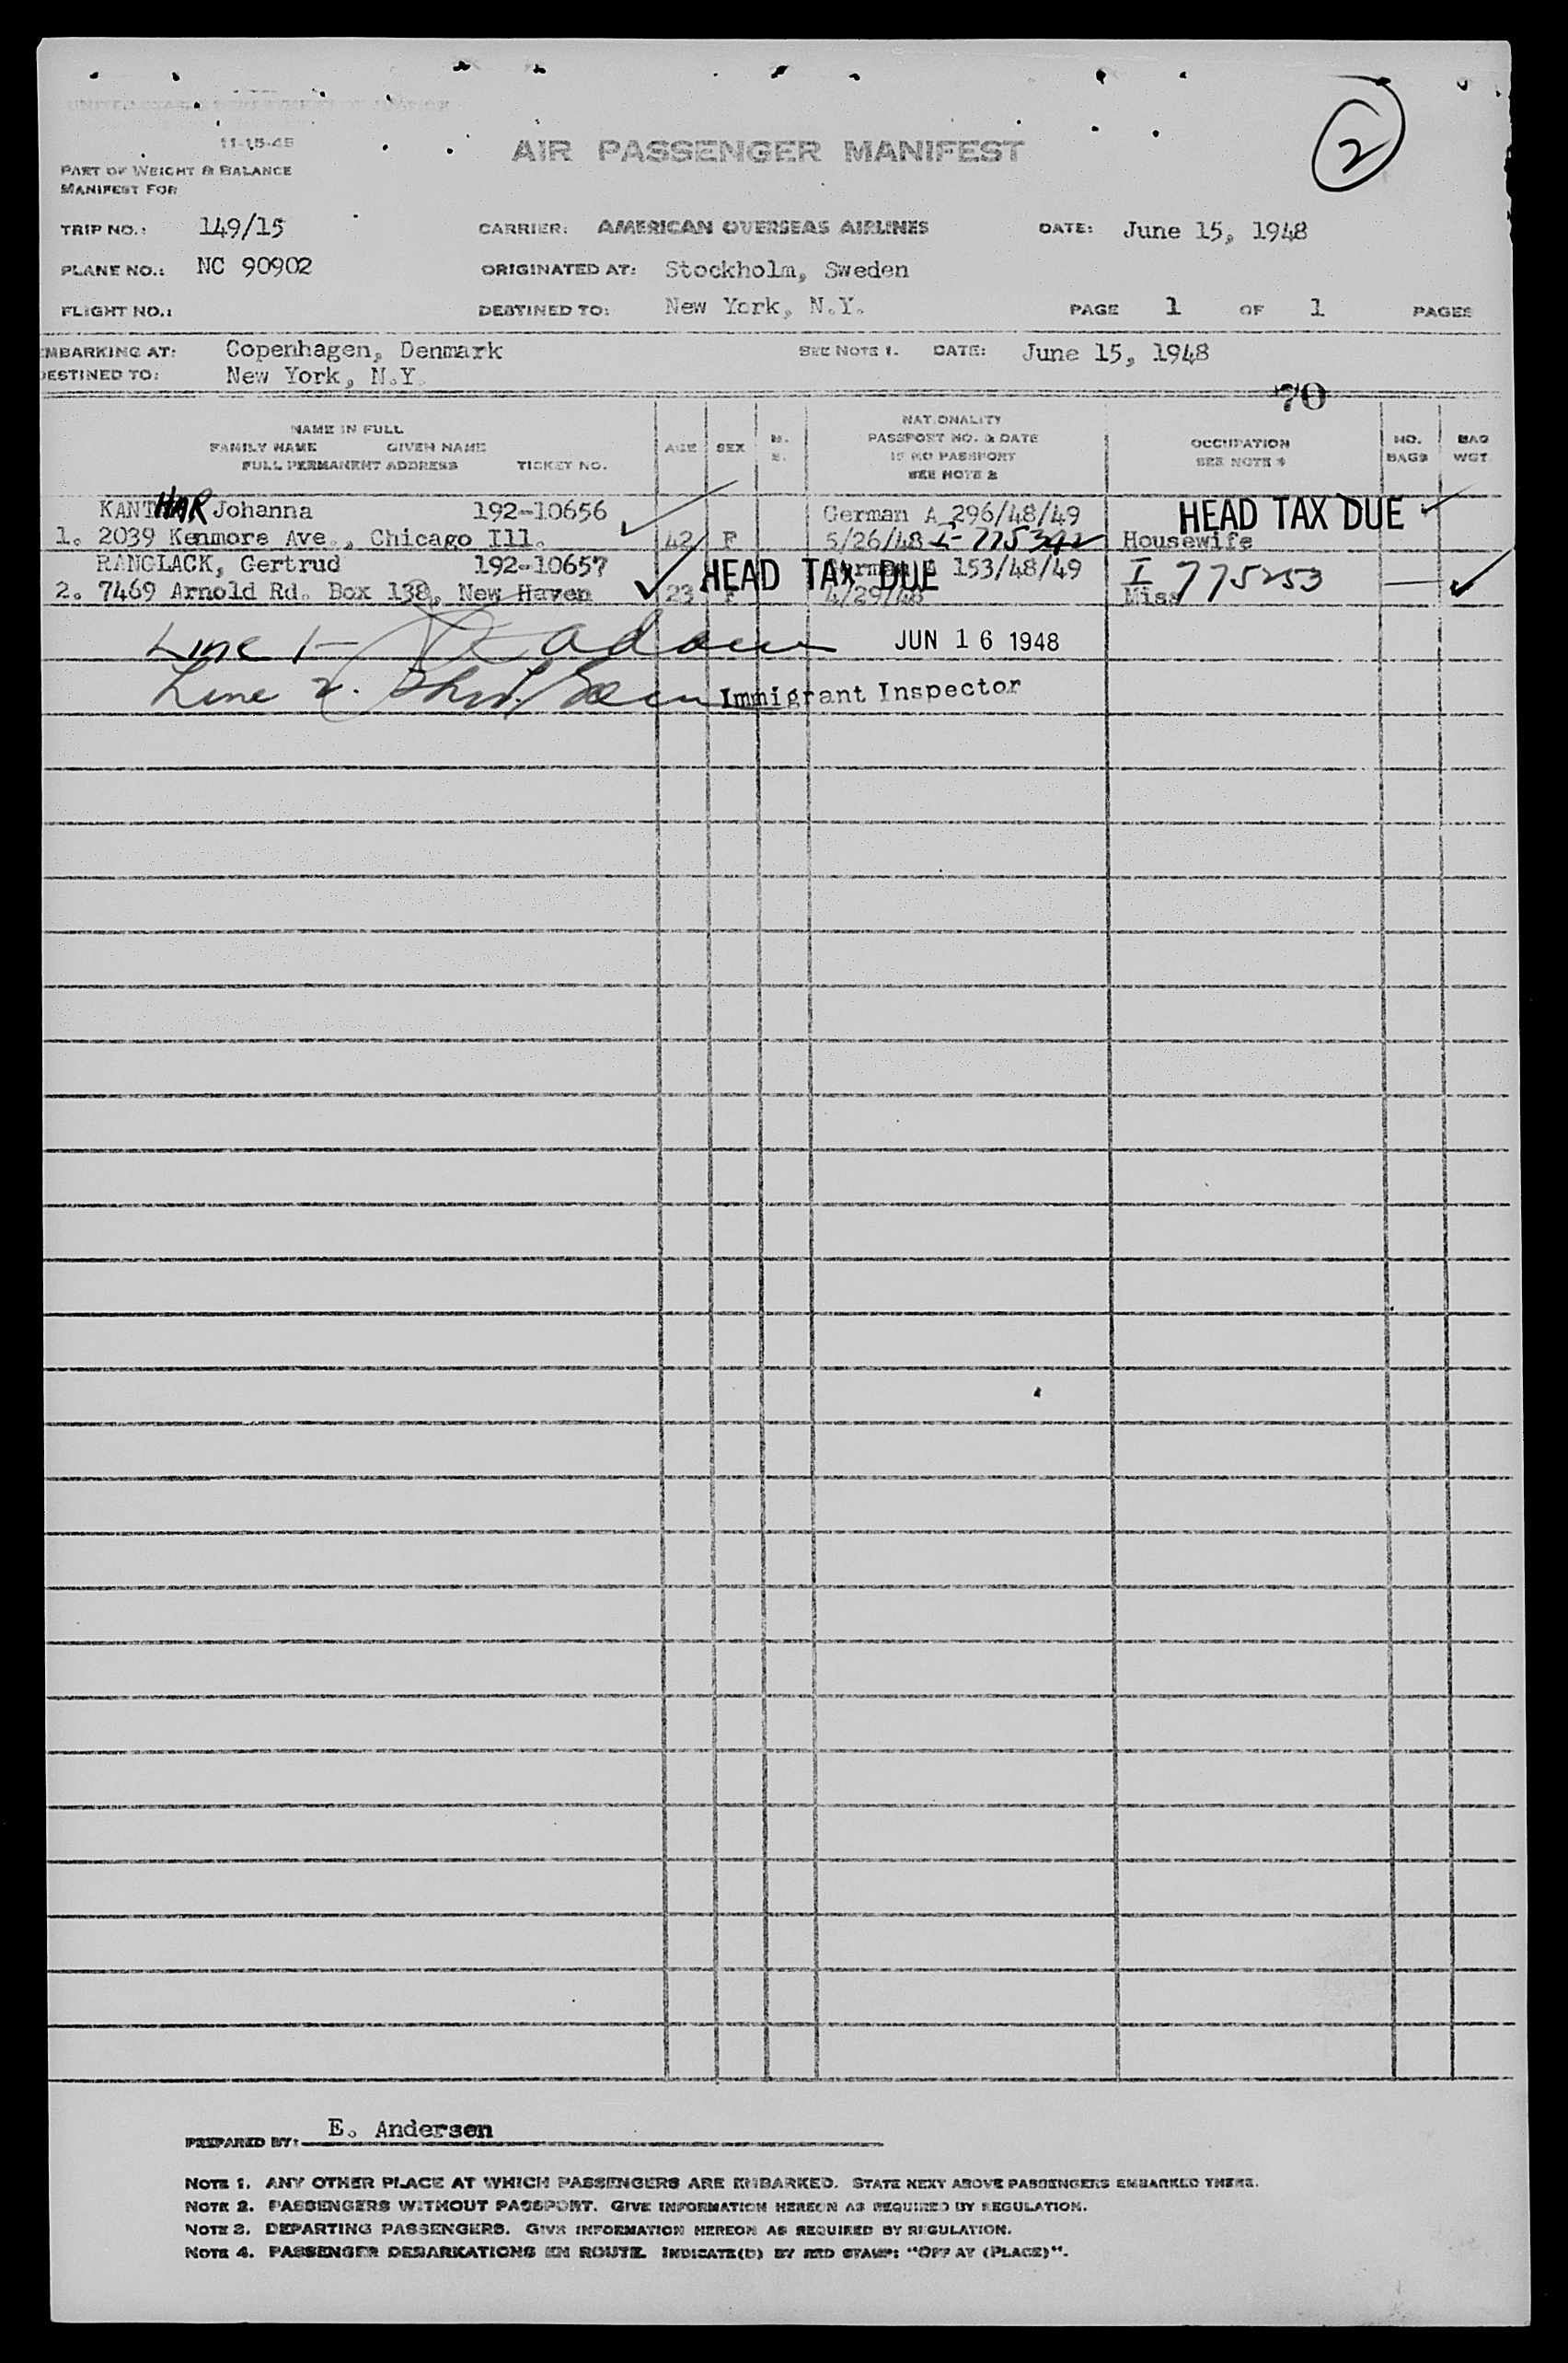 UNITED STATES DEPARTMENT OF JUSTICE
11-15-45
AIR PASSENGER MANIFEST
2
PART OF WEIGHT & BALANCE
MANIFEST FOR
TRIP NO.: 149/15 CARRIER: AMERICAN OVERSEAS AIRLINES DATE: June 15, 1948
PLANE NO.: NC 90902 ORIGINATED AT: Stockholm, Sweden
FLIGHT NO.: DESTINED TO: New York, N.Y. PAGE 1 OF 1 PAGES
EMBARKING AT: Copenhagen, Denmark SEE NOTE 1. DATE: June 15, 1948
DESTINED TO: New York, N.Y.
70
NAME IN FULL
FAMILY NAME GIVEN NAME
FULL PERMANENT ADDRESS TICKET NO.
AGE SEX
NATIONALITY
PASSPORT NO. & DATE
IF NO PASSPORT
SEE NOTE 2
OCCUPATION
SEE NOTE
NO.
BAGS
BAG
WGT.
KANTHAR Johanna 192-10656 German A 296/48/49 HEAD TAX DUE
1. 2039 Kenmore Ave., Chicago Ill. 42 F 5/26/48 I-775392 Housewife
RANGLACK, Gertrud 192-10657 HEAD TAX DUE German A 153/48/49 I 775253
2. 7469 Arnold Rd. Box 138, New Haven 23 F 4/29/48 Miss
Line 1- JUN 16 1948
Line 2. Immigrant Inspector
PREPARED BY: E. Andersen
NOTE 1. ANY OTHER PLACE AT WHICH PASSENGERS ARE EMBARKED. STATE NEXT ABOVE PASSENGERS EMBARKED THERE.
NOTE 2. PASSENGERS WITHOUT PASSPORT. GIVE INFORMATION HEREON AS REQUIRED BY REGULATION.
NOTE 3. DEPARTING PASSENGERS. GIVE INFORMATION HEREON AS REQUIRED BY REGULATION.
NOTE 4. PASSENGER DEBARKATIONS EN ROUTE. INDICATE(D) BY RED STAMP: "OFF AT (PLACE)".